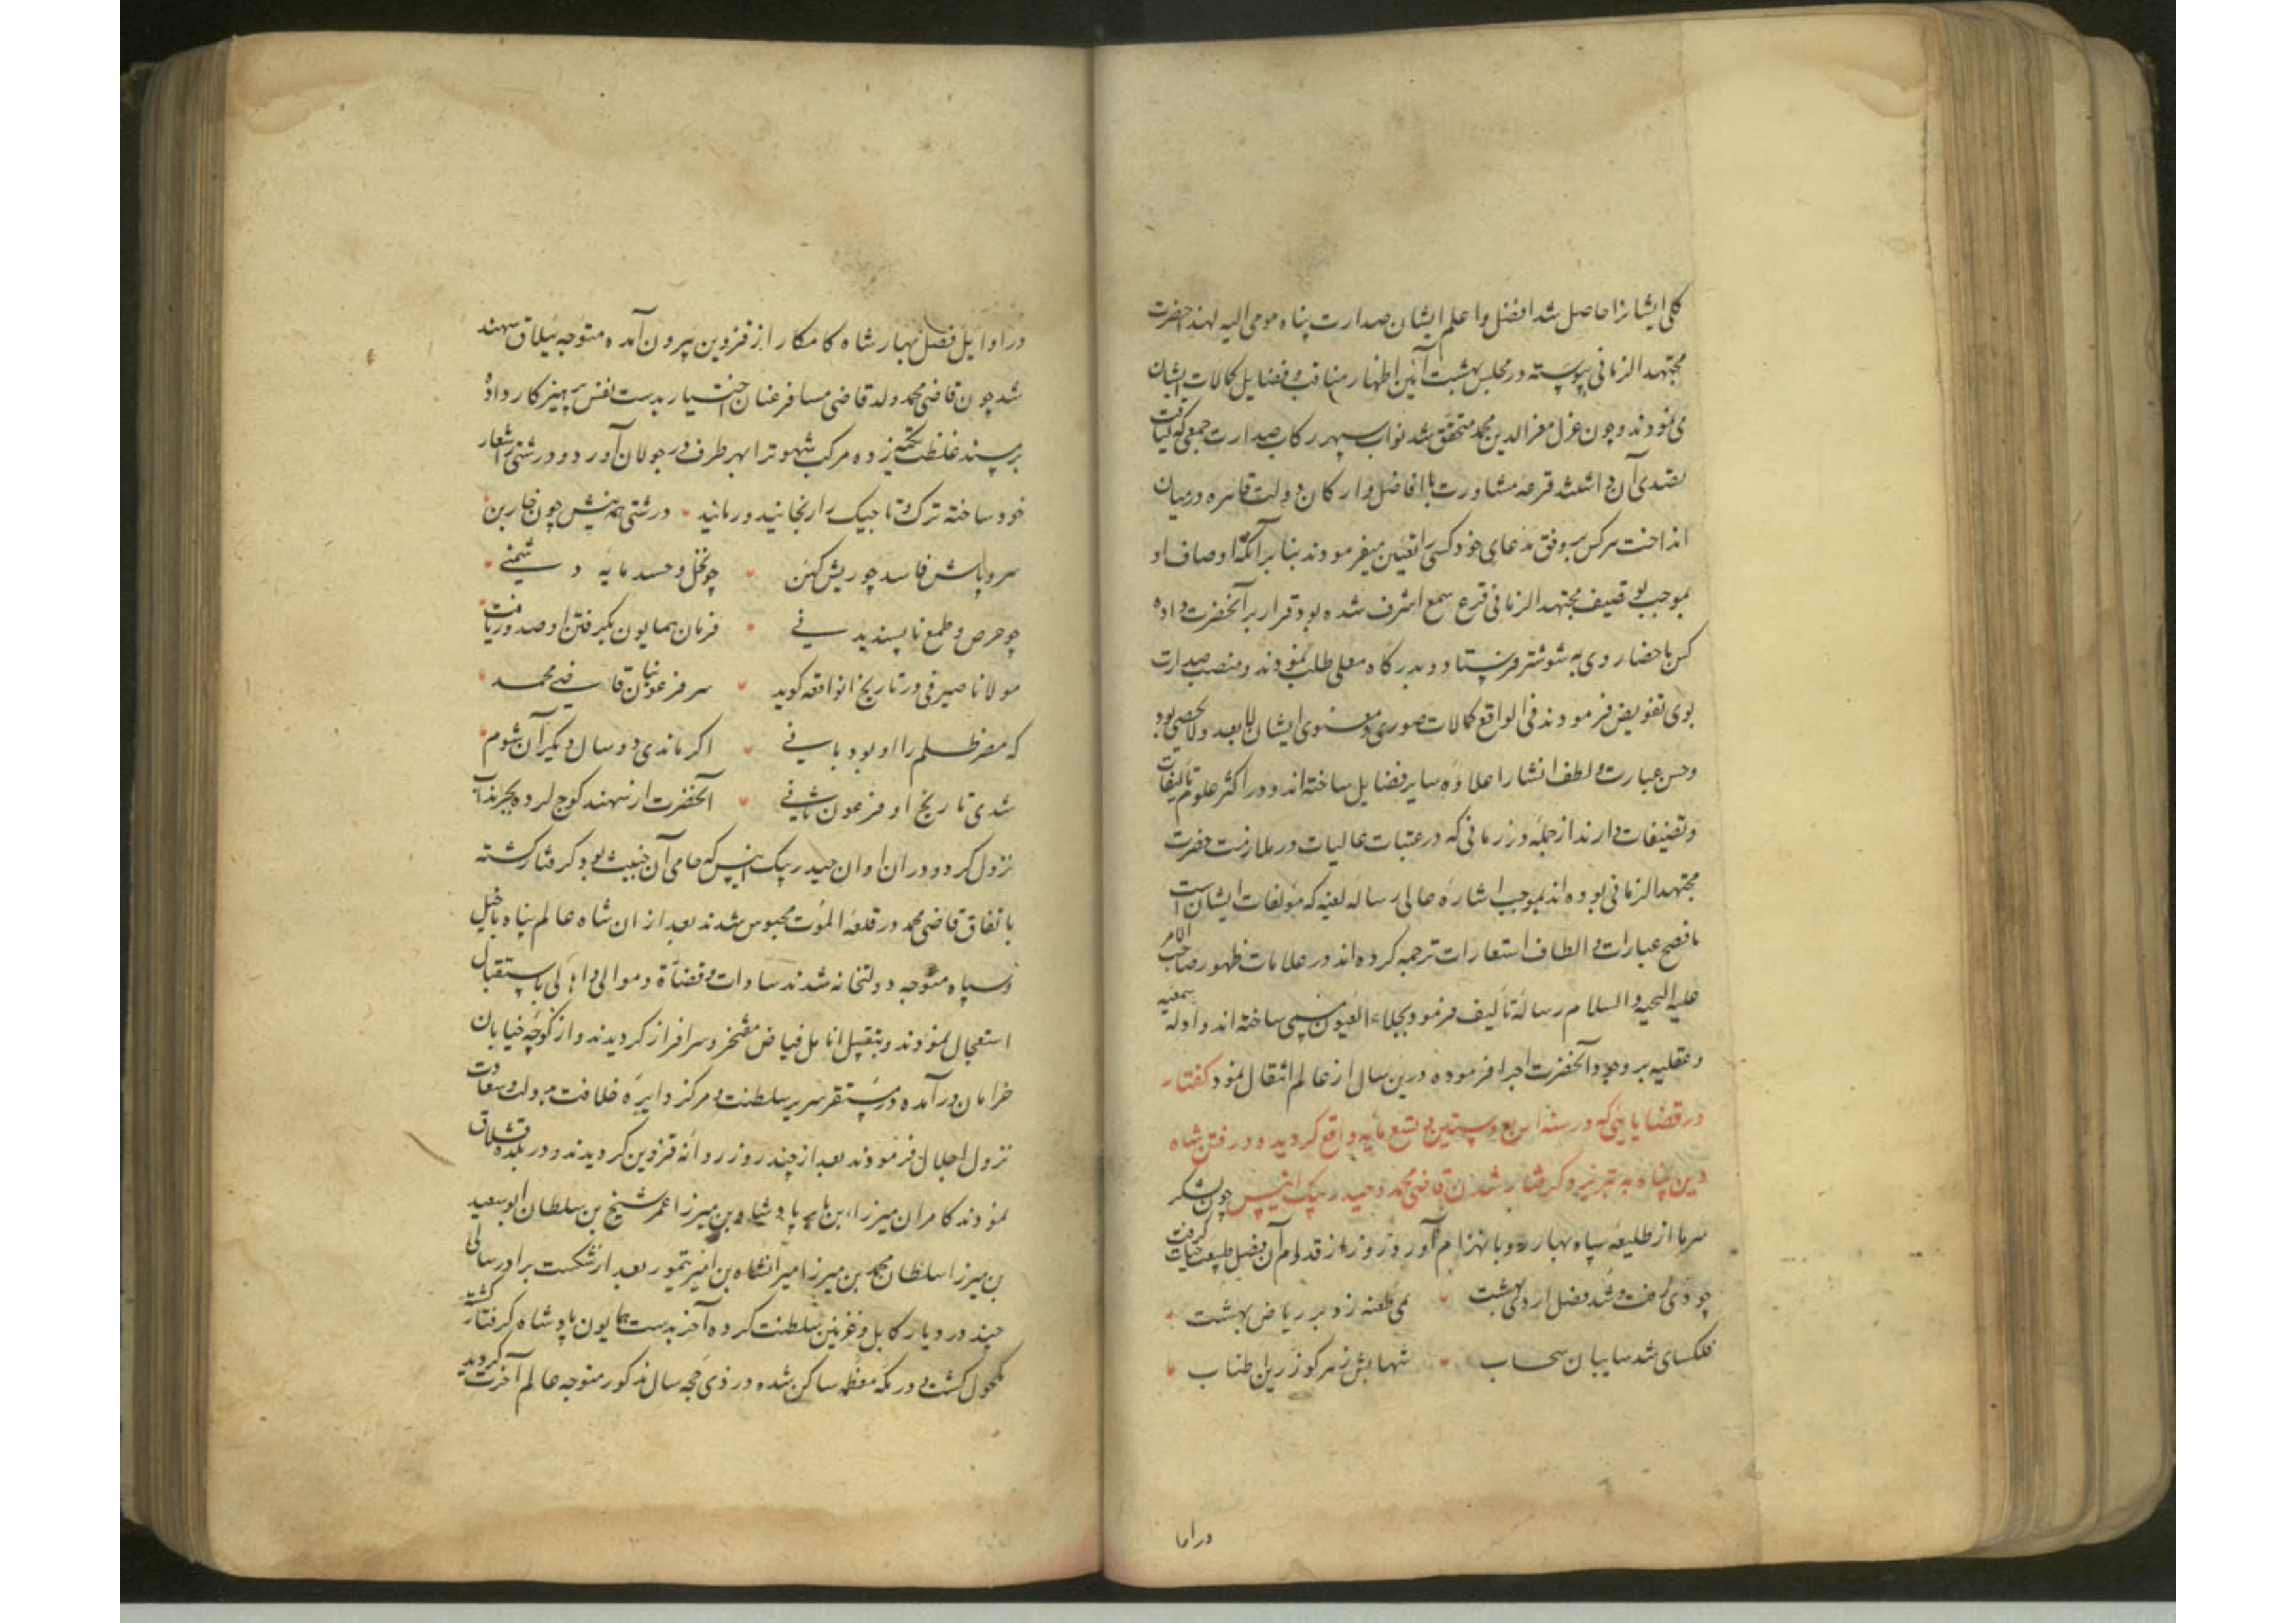 کلی ایشانرا حاصل شد افضل و اعلم ایشان صدارت پناه مومی الیه لهذا حضرت
مجتهد الزمانی پیوسته در مجلس بهشت آیین اظهار مناقب و فضایل کمالات ایشان
می نمودند و چون عزل معز الدین محمد متحقق شد نواب سپهر رکاب صدارت جمعی که لیاقت
تصدی آن داشتند قرعه مشاورت با افاضل و ارکان دولت قاهره در میان
انداخت هرکس بر وفق مدعای خود کسی را تعیین میفرمودند بنا بر آنکه اوصاف او
بموجب توصیف مجتهد الزمانی قرع سمع اشرف شده بود قرار بر آنحضرت داده
کس باحضار وی به شوشتر فرستاد و بدرگاه معلی طلب نمودند و منصب صدارت
بوی تفویض فرمودند فی الواقع کمالات صوری و معنوی ایشان لا یعد و لا یحصی بود
و حسن عبارت و لطف انشا را علاوه سایر فضایل ساخته اند و در اکثر علوم تالیفات
و تصنیفات دارند از جمله در زمانی که در عتبات عالیات در ملازمت حضرت
مجتهد الزمانی بوده اند بموجب اشاره عالی رساله لعنیه که مؤلفات ایشان است
بافصح عبارات و الطاف استعارات ترجمه کرده اند در علامات ظهور صاحب الامر
علیه التحیه و السلام رساله تألیف فرمود و بجلاء العیون مسمی ساخته اند و ادله سمعیه
و عقلیه بر وجود آنحضرت اجرا فرموده درین سال از عالم انتقال نمود گفتار
در قضایایی که در سنه اربع و ستین و تسع مایه واقع گردیده و رفتن شاه
دین پناه به تبریز و گرفتار شدن قاضی محمد و حیدر بیک انیس چون لشکر
سرما از طلیعه سپاه بهار رو بانهزام آورد و روز از قدوم آن فصل طبیعت حیات گرفت
چو دی رفت و شد فصل اردیبهشت • می طعنه زد بر ریاض بهشت
فلکسای شد سایبان سحاب • شهابش ز هر کو زرین طناب
در اوا
در اوایل فصل بهار شاه کامکار از قزوین بیرون آمده متوجه ییلاق سهند
شد چون قاضی محمد ولد قاضی مسافر عنان اختیار بدست نفس پرهیزکار داده
بر مسند غلظت تکیه زده مرکب شهوت را بهر طرف در جولان آورد و درشتی شعار
خود ساخته ترک و تاجیک را رنجانید و رمانید • درشتی همه نیش چون خاربن
سر و پاش فاسد چو ریش کهن • چو بخل و حسد مایه دشمنی
چو حرص و طمع ناپسندیدنی • فرمان همایون بگرفتن او صدور یافت
مولانا صیرفی در تاریخ انواقعه گوید • سر فرعونیان قاضی محمد
که مصر ظلم را او بود بانی • اگر ماندی دو سال دیگر آن شوم
شدی تاریخ او فرعون ثانی • آنحضرت از سهند کوچ کرده بجرنداب
نزول کرد و در ان اوان حیدر بیک انیس که حامی آن خبیث بود گرفتار گشته
باتفاق قاضی محمد در قلعه الموت محبوس شدند بعد از ان شاه عالم پناه باخیل
و سپاه متوجه دولتخانه شدند سادات و قضاة و موالی و اهالی باستقبال
استعجال نمودند و بتقبیل انامل فیاض مفتخر و سرافراز گردیدند و از کوچه خیابان
خرامان درآمده در مستقر سریر سلطنت و مرکز دایره خلافت بدولت و سعادت
نزول اجلال فرمودند بعد از چند روز روانه قزوین گردیدند و در بلده قشلاق
نمودند کامران میرزا ابن بابر پادشاه بن میرزا عمر شیخ بن سلطان ابوسعید
بن میرزا سلطان محمد بن میرزا میرانشاه بن امیر تیمور بعد از شکست برادر سالی
چند در دیار کابل و غزنین سلطنت کرده آخر بدست همایون پادشاه گرفتار گشته
مکحول گشت و در مکه معظمه ساکن شده در ذی حجه سال مذکور متوجه عالم آخرت گردید